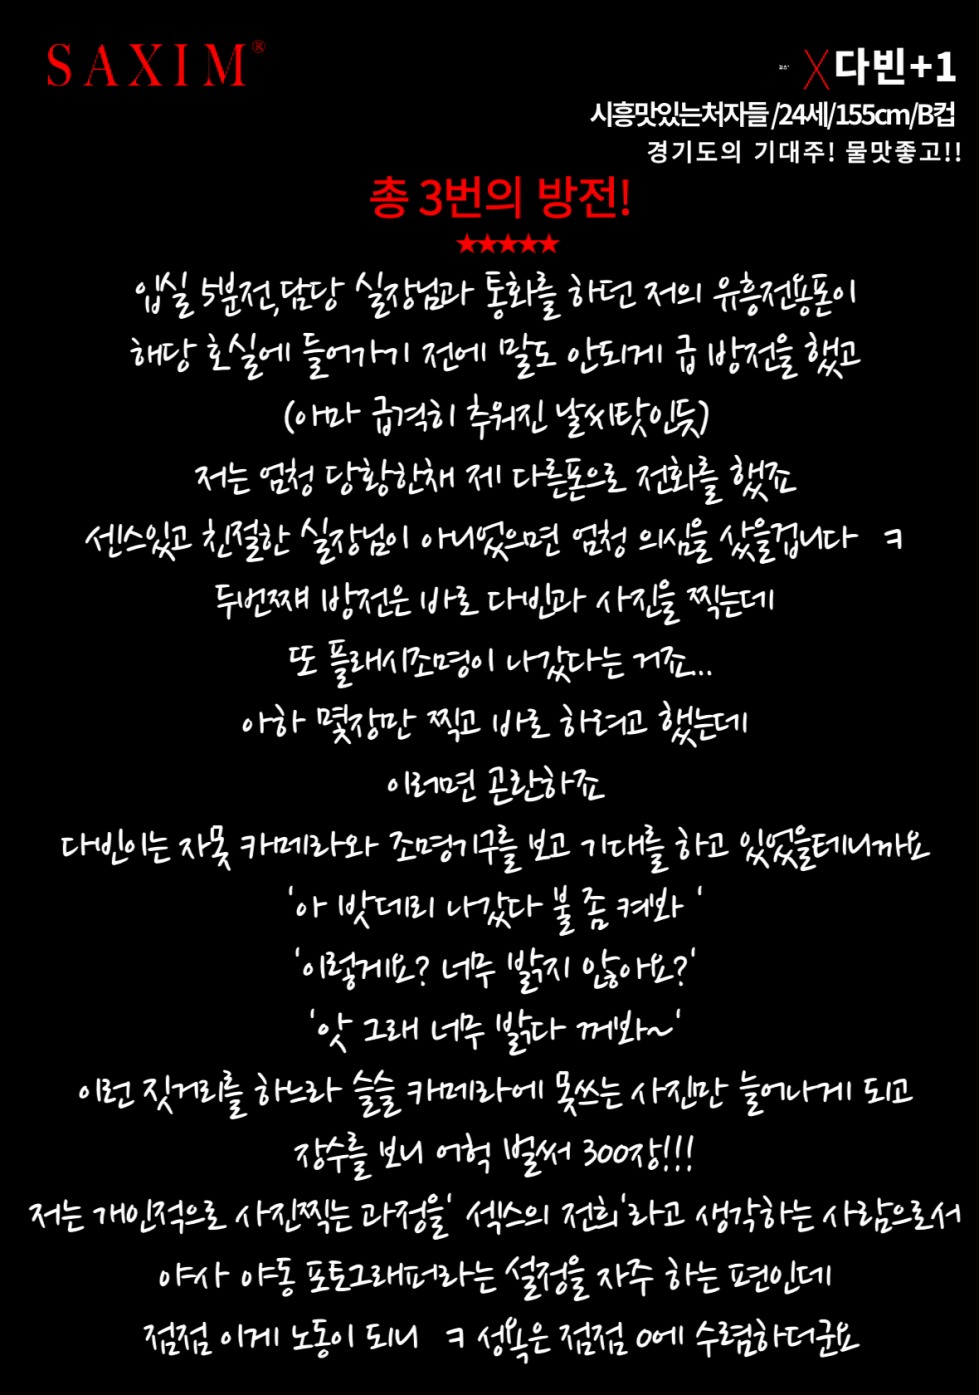 SAXIM®
X다빈+1
시흥맛있는처자들/24세/155cm/B컵
경기도의 기대주! 물맛좋고!!
총 3번의 방전!
★★★★★
입실 5분전,담당 실장님과 통화를 하던 저의 유흥전용폰이
해당 호실에 들어가기 전에 말도 안되게 급 방전을 했고
(아마 급격히 추워진 날씨탓인듯)
저는 엄청 당황한채 제 다른폰으로 전화를 했죠
센스있고 친절한 실장님이 아니었으면 엄청 의심을 샀을겁니다 ㅋ
두번째 방전은 바로 다빈과 사진을 찍는데
또 플래시조명이 나갔다는 거죠...
아하 몇장만 찍고 바로 하려고 했는데
이러면 곤란하죠
다빈이는 자못 카메라와 조명기구를 보고 기대를 하고 있었을테니까요
'아 밧데리 나갔다 불 좀 켜봐 '
'이렇게요? 너무 밝지 않아요?'
'앗 그래 너무 밝다 꺼봐~'
이런 짓거리를 하느라 슬슬 카메라에 못쓰는 사진만 늘어나게 되고
장수를 보니 어헉 벌써 300장!!!
저는 개인적으로 사진찍는 과정을' 섹스의 전희'라고 생각하는 사람으로서
야사 야동 포토그래퍼라는 설정을 자주 하는 편인데
점점 이게 노동이 되니 ㅋ 성욕은 점점 0에 수렴하더군요